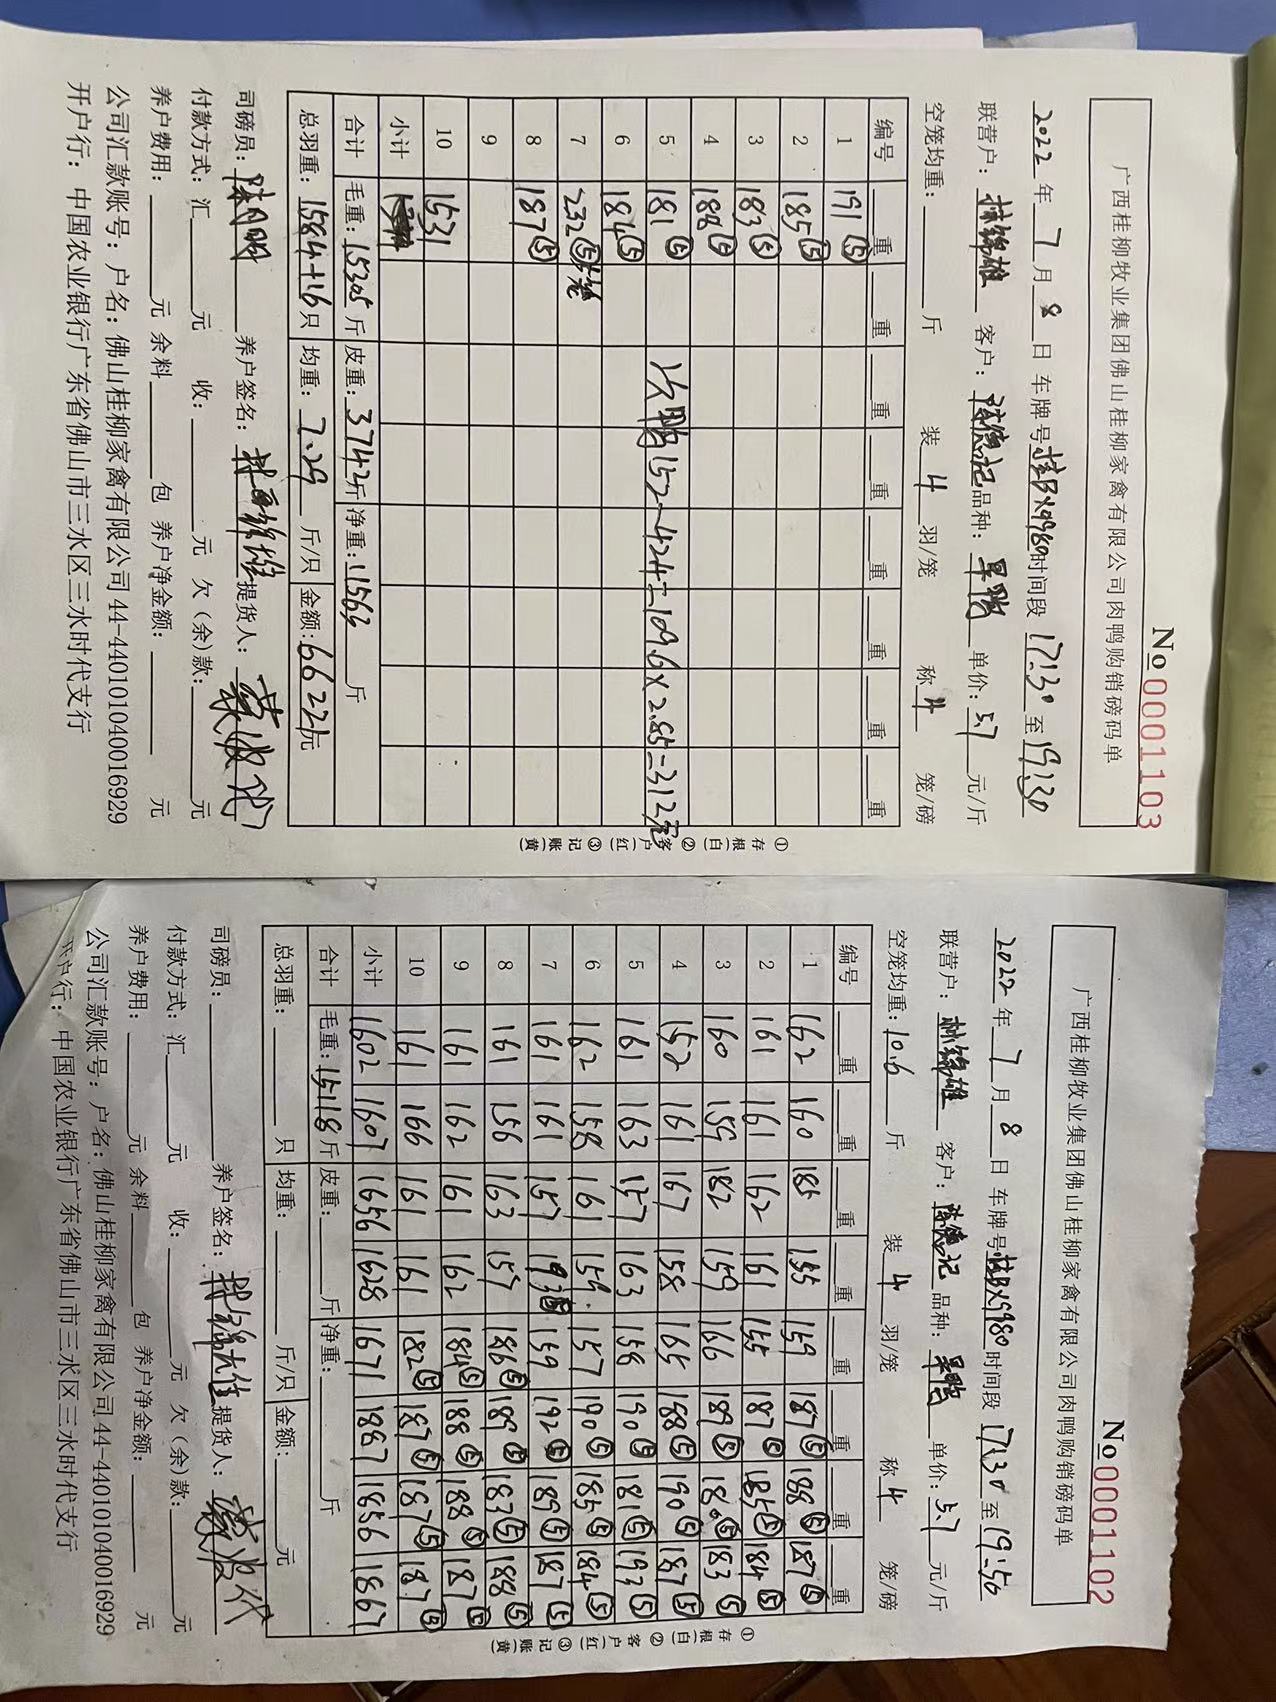 广西桂柳牧业集团佛山桂柳家禽有限公司肉鸭购销磅码单
№0001103
2022年7月8日 车牌号桂BX9980时间段17:30至19:30
联营户：林锦雄 客户：陈德记 品种：旱鸭 单价：5.7元/斤
空笼均重：斤 装4羽/笼 称4笼/磅
编号 重 重 重 重 重 重 重 重
1 191⑤
2 185⑤
3 183⑤
4 188⑤
5 181⑤ 次鸭152-42.4=109.6×2.85=312元
6 184⑤
7 232⑤
8 187⑤
9
10 1531
小计
合计 毛重：15305斤 皮重：3742斤 净重：11563斤
总羽重：1584+16只 均重：7.29斤/只 金额：66221元
司磅员： 养户签名： 提货人：
付款方式：汇元 收：元 欠（余）款：元
养户费用：元 余料包 养户净金额：元
公司汇款账号：户名：佛山桂柳家禽有限公司44-440101040016929
开户行：中国农业银行广东省佛山市三水区三水时代支行
①存根（白）②客户（红）③记账（黄）
广西桂柳牧业集团佛山桂柳家禽有限公司肉鸭购销磅码单
№0001102
2022年7月8日 车牌号桂BX9980时间段17:30至19:50
联营户：林锦雄 客户：陈德记 品种：旱鸭 单价：5.7元/斤
空笼均重：10.6斤 装4羽/笼 称4笼/磅
编号 重 重 重 重 重 重 重 重
1 162 160 185 155 159 187⑤ 188⑤ 187⑤
2 161 161 162 161 155 187⑤ 185⑤ 184⑤
3 160 159 182 159 166 189⑤ 180⑤ 183⑤
4 152 161 167 158 165 188⑤ 190⑤ 187⑤
5 161 163 157 163 158 190⑤ 181⑤ 193⑤
6 162 158 161 159 157 190⑤ 185⑤ 184⑤
7 161 161 157 193⑤ 159 192⑤ 189⑤ 187⑤
8 161 156 163 157 186⑤ 189⑤ 183⑤ 188⑤
9 161 162 161 162 184⑤ 188⑤ 188⑤ 187⑤
10 161 166 161 161 182⑤ 187⑤ 187⑤ 187⑤
小计 1602 1607 1656 1628 1671 1887 1856 1867
合计 毛重：15118斤 皮重：斤 净重：斤
总羽重：只 均重：斤/只 金额：元
司磅员： 养户签名：林锦雄 提货人：
付款方式：汇元 收：元 欠（余）款：元
养户费用：元 余料包 养户净金额：元
公司汇款账号：户名：佛山桂柳家禽有限公司44-440101040016929
开户行：中国农业银行广东省佛山市三水区三水时代支行
①存根（白）②客户（红）③记账（黄）